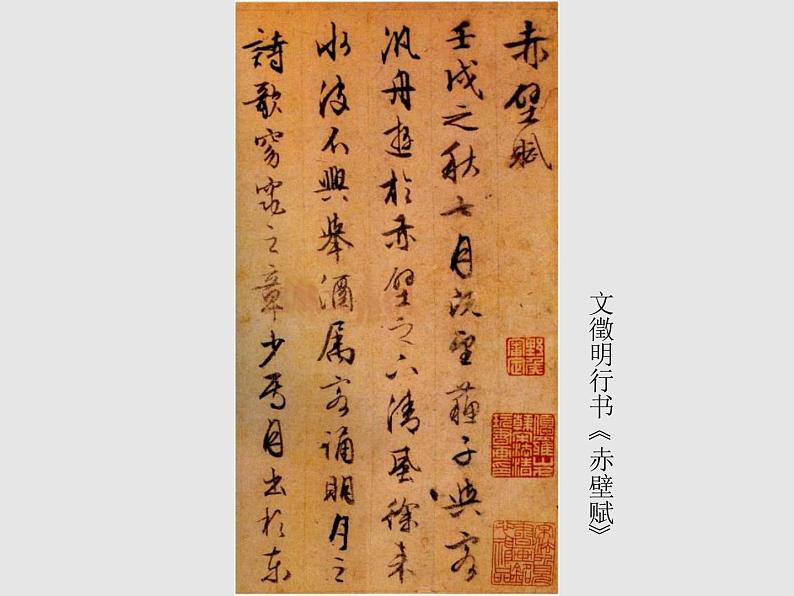 赤壁賦
壬戌之秋七月既望蘇子與客
汎舟遊於赤壁之下清風徐來
水波不興舉酒属客誦明月之
詩歌窈窕之章少焉月出於東
文徵明行书《赤壁赋》